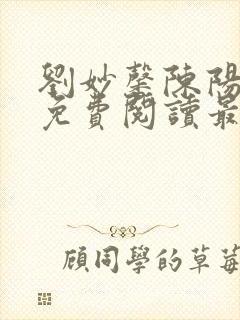 劉妙馨陳陽
免費閱讀最
顧同學的草莓